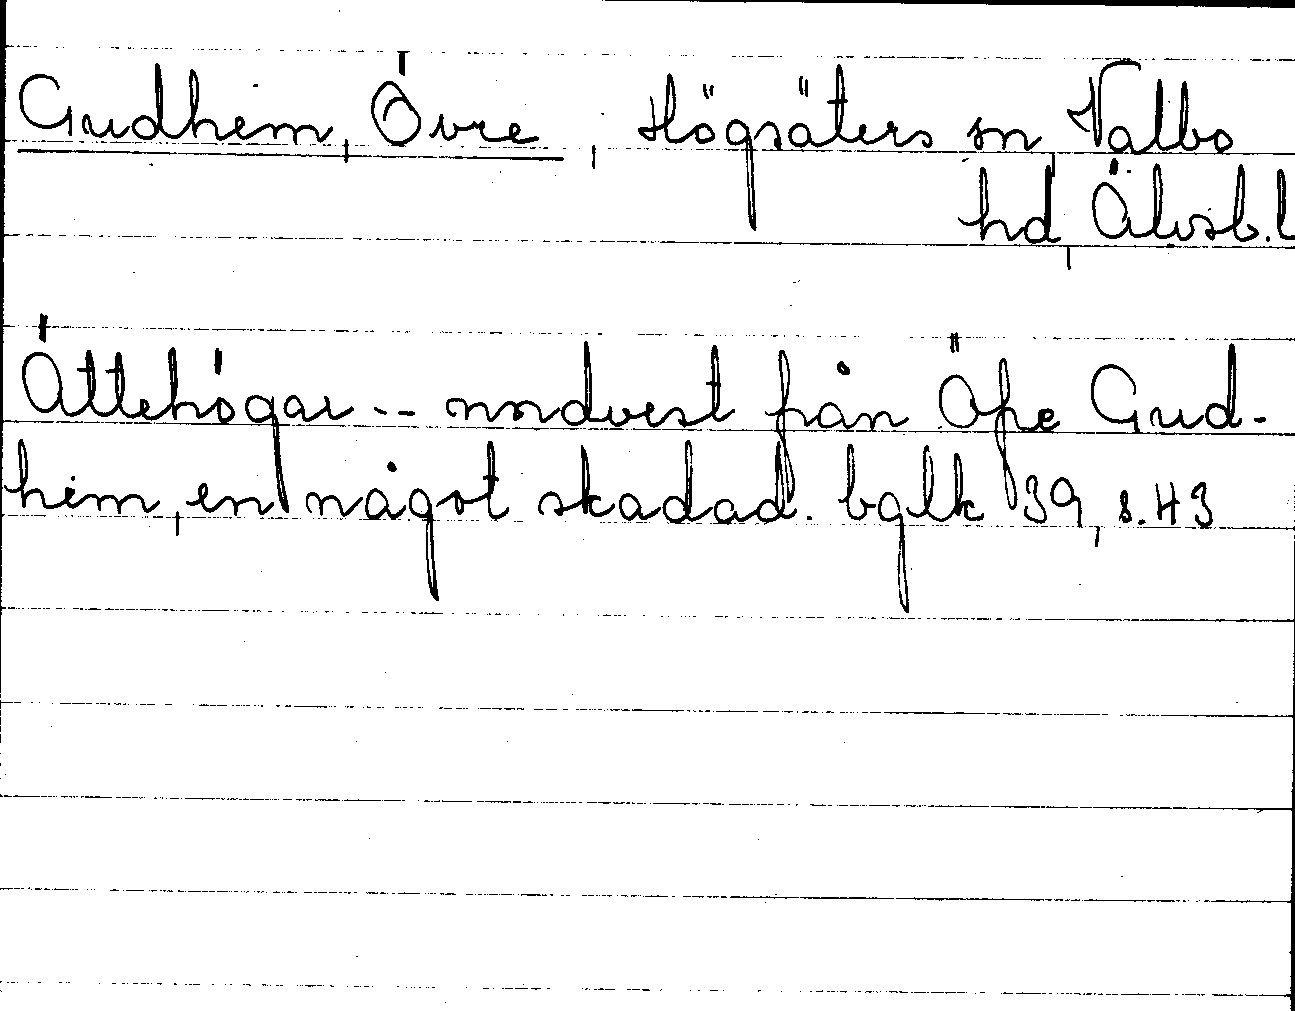 Gudhem, Övre, Högsäters sn Valbo
hd, Älvsb.l
Ättehögar -- nordvest från Öfre Gud-
hem, en något skadad. bglk 39, s. 43